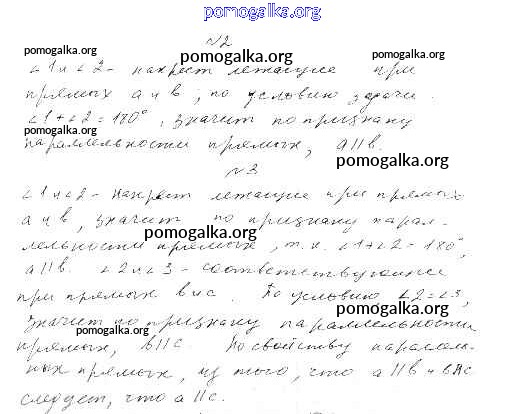 pomogalka.org
№2
pomogalka.org
pomogalka.org
pomogalka.org
∠1 и ∠2 - накрест лежащие при
прямых a и в, по условию задачи.
∠1+∠2=180°, значит по признаку
pomogalka.org
параллельности прямых, a||в.
№3
pomogalka.org
∠1 и ∠2 - накрест лежащие при прямых
a и в, значит по признаку парал-
pomogalka.org
лельности прямых, т.к. ∠1+∠2=180°,
a||в. ∠2 и ∠3 - соответствующие
при прямых в и с. По условию ∠2=∠3,
pomogalka.org
значит по признаку параллельности
pomogalka.org
прямых, в||с. По свойству параллель-
ных прямых, из того, что a||в и в||с
pomogalka.org
следует, что a||с.